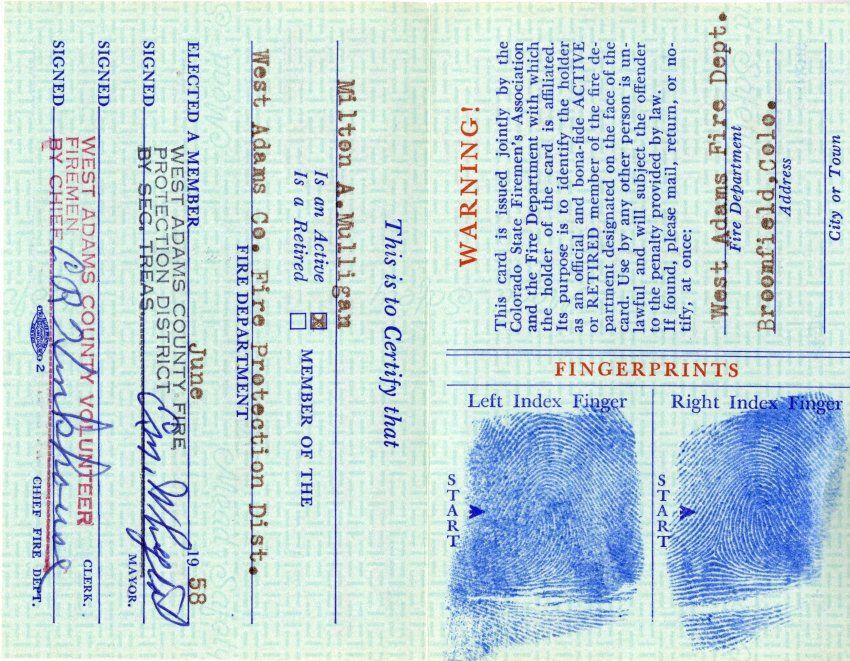 This is to Certify that
Milton A.Mulligan
Is an Active ☒
Is a Retired ☐
MEMBER OF THE
West Adams Co. Fire Protection Dist.
FIRE DEPARTMENT
ELECTED A MEMBER June 19 58
WEST ADAMS COUNTY FIRE
PROTECTION DISTRICT
SIGNED BY SEC. TREAS.
MAYOR.
SIGNED
CLERK.
WEST ADAMS COUNTY VOLUNTEER
FIREMEN
SIGNED BY CHIEF
CHIEF FIRE DEPT.
2
WARNING!
This card is issued jointly by the
Colorado State Firemen's Association
and the Fire Department with which
the holder of the card is affiliated.
Its purpose is to identify the holder
as an official and bona-fide ACTIVE
or RETIRED member of the fire de-
partment designated on the face of the
card. Use by any other person is un-
lawful and will subject the offender
to the penalty provided by law.
If found, please mail, return, or no-
tify, at once:
West Adams Fire Dept.
Fire Department
Broomfield,Colo.
Address
City or Town
FINGERPRINTS
Left Index Finger
Right Index Finger
START
START